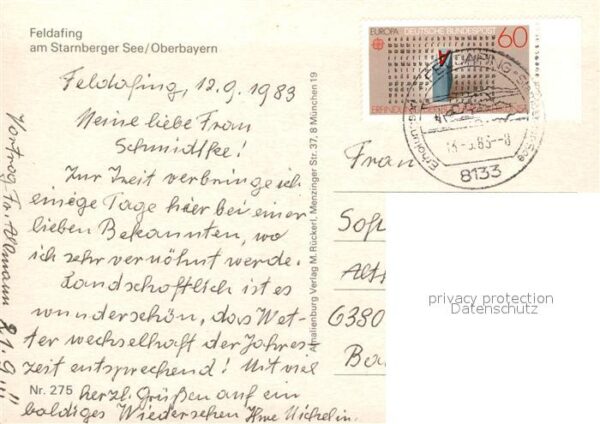 Feldafing
am Starnberger See/Oberbayern
Feldafing, 12.9.1983
Meine liebe Frau
Schmidtke!
Zur Zeit verbringe ich
einige Tage hier bei einer
lieben Bekannten, wo
ich sehr verwöhnt werde.
Landschaftlich ist es
wunderschön, das Wet-
ter wechselhaft der Jahres-
zeit entsprechend! Mit viel
herzl. Grüßen auf ein
baldiges Wiedersehen Ihre
Nr. 275
Vortrag Fr. 21.9.!!!
Amalienburg Verlag M. Rückerl, Menzinger Str. 37, 8 München 19
EUROPA DEUTSCHE BUNDESPOST
60
FELDAFING
83-8
8133
Frau
Sop
Alt
6380
Ba
privacy protection
Datenschutz